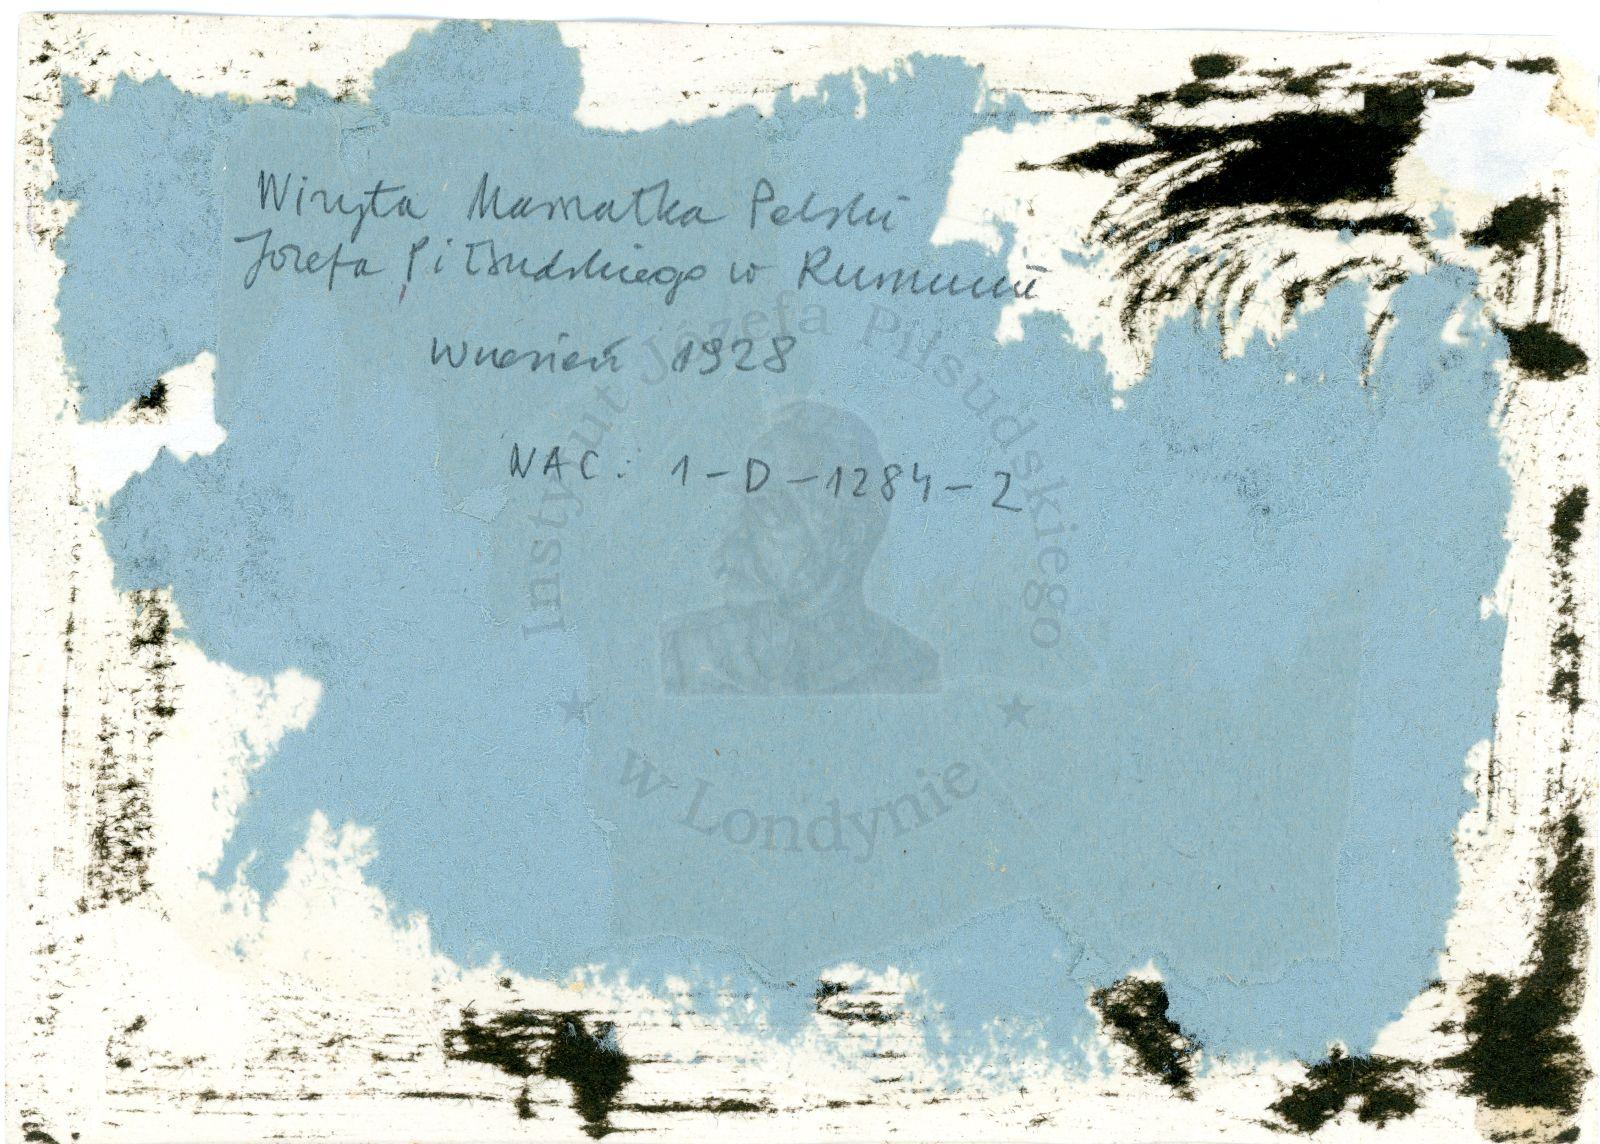 Wizyta Marszałka Polski
Józefa Piłsudskiego w Rumunii
Wrzesień 1928
NAC: 1-D-1284-2
Instytut Józefa Piłsudskiego
w Londynie